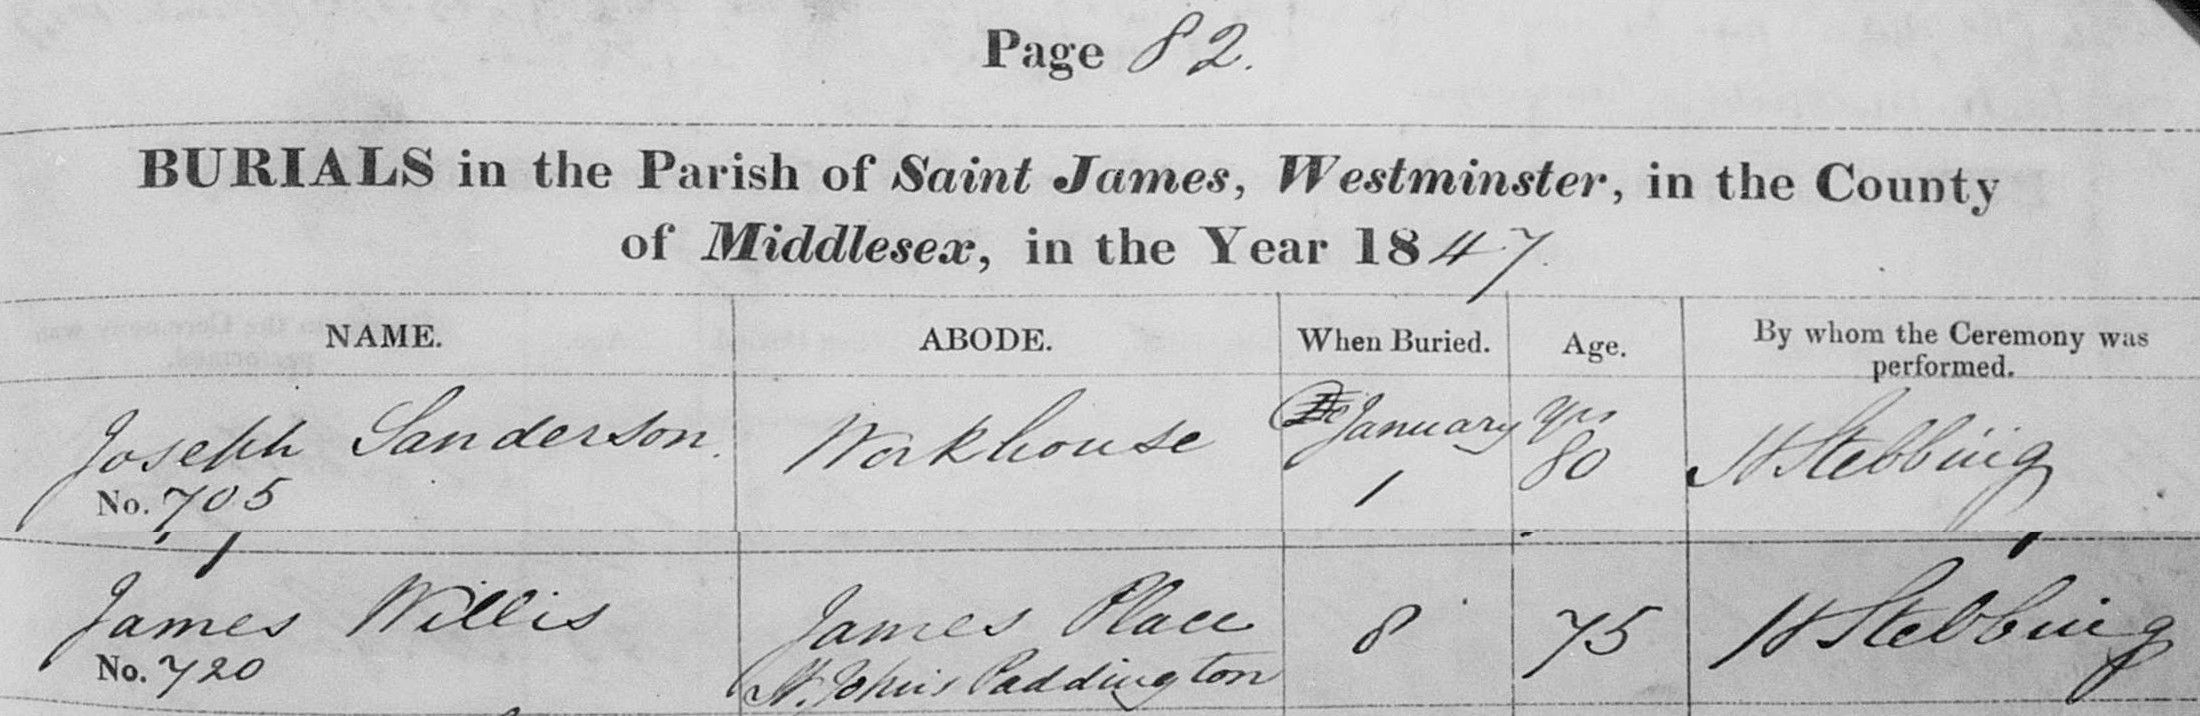 Page 82.
BURIALS in the Parish of Saint James, Westminster, in the County
of Middlesex, in the Year 1847.
NAME. ABODE. When Buried. Age. By whom the Ceremony was performed.
Joseph Sanderson. Workhouse January yrs
No. 705 1 80 H Stebbing
James Willis James Place 8 75 H Stebbing
No. 720 St. John's Paddington